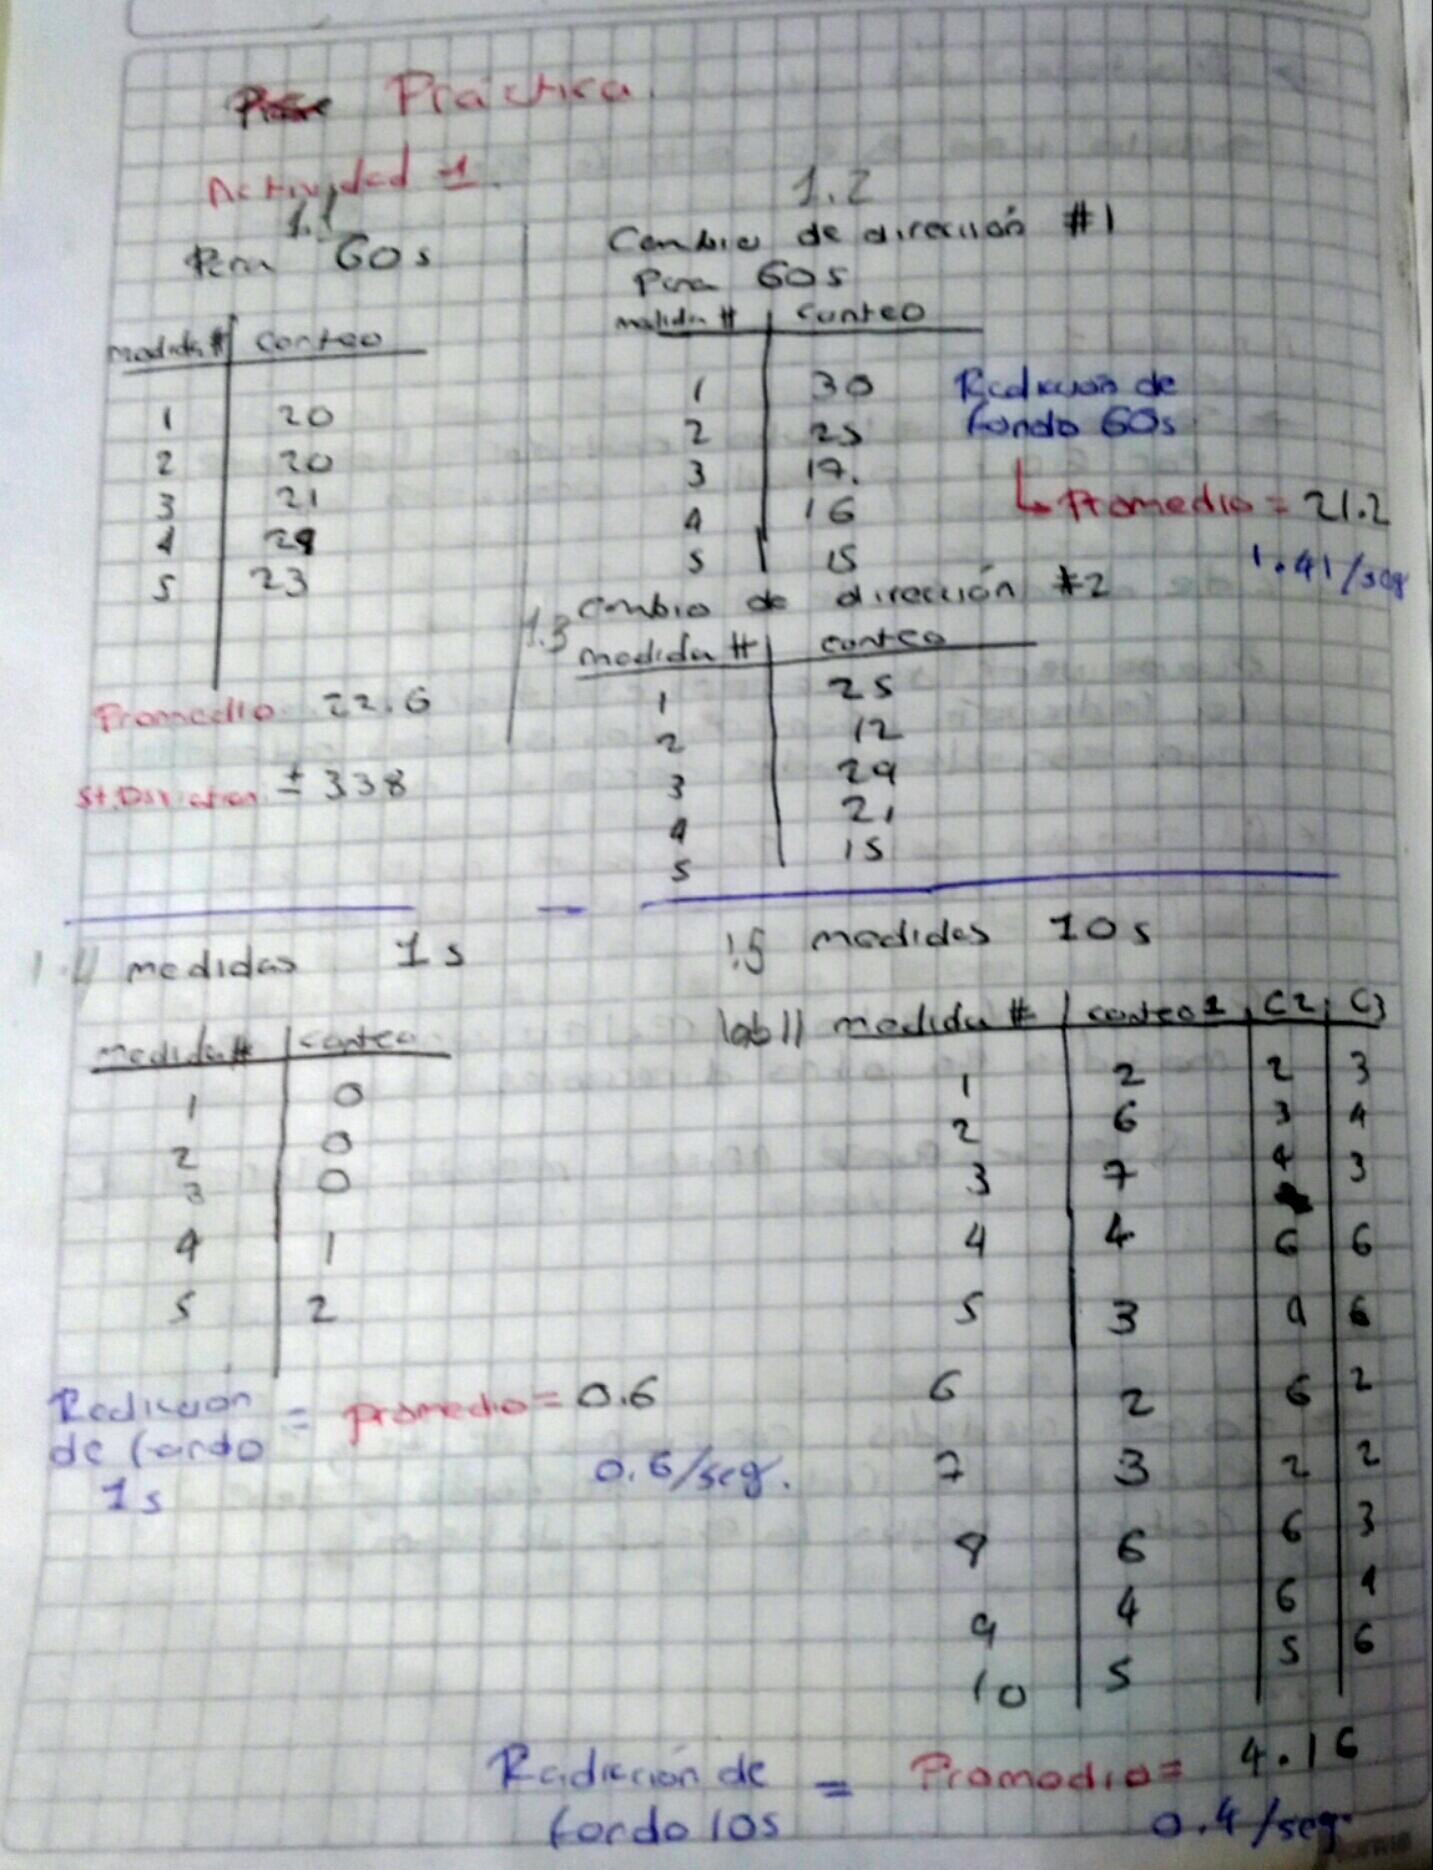 Práctica
Actividad 1.
1.1
Para 60s
medida # conteo
1 20
2 20
3 21
4 29
5 23
Promedio 22.6
St. Desviation ± 3.38
1.2
Cambio de dirección #1
Para 60s
medida # conteo
1 30
2 25
3 17.
4 16
5 15
Radiación de
fondo 60s
↳ Promedio = 21.2
1.41/seg
1.3 cambio de dirección #2
medida # conteo
1 25
2 12
3 29
4 21
5 15
1.4 medidas 1s
medida # conteo
1 0
2 0
3 0
4 1
5 2
Radiación
de fondo = promedio = 0.6
1s
0.6/seg.
1.5 medidas 10s
lab11 medida # conteo 1 C2 C3
1 2 2 3
2 6 3 4
3 7 4 3
4 4 6 6
5 3 6
6 2 6 2
7 3 2 2
8 6 6 3
9 4 6 4
10 5 5 6
Radiación de = Promedio = 4.16
fondo 10s
0.4/seg